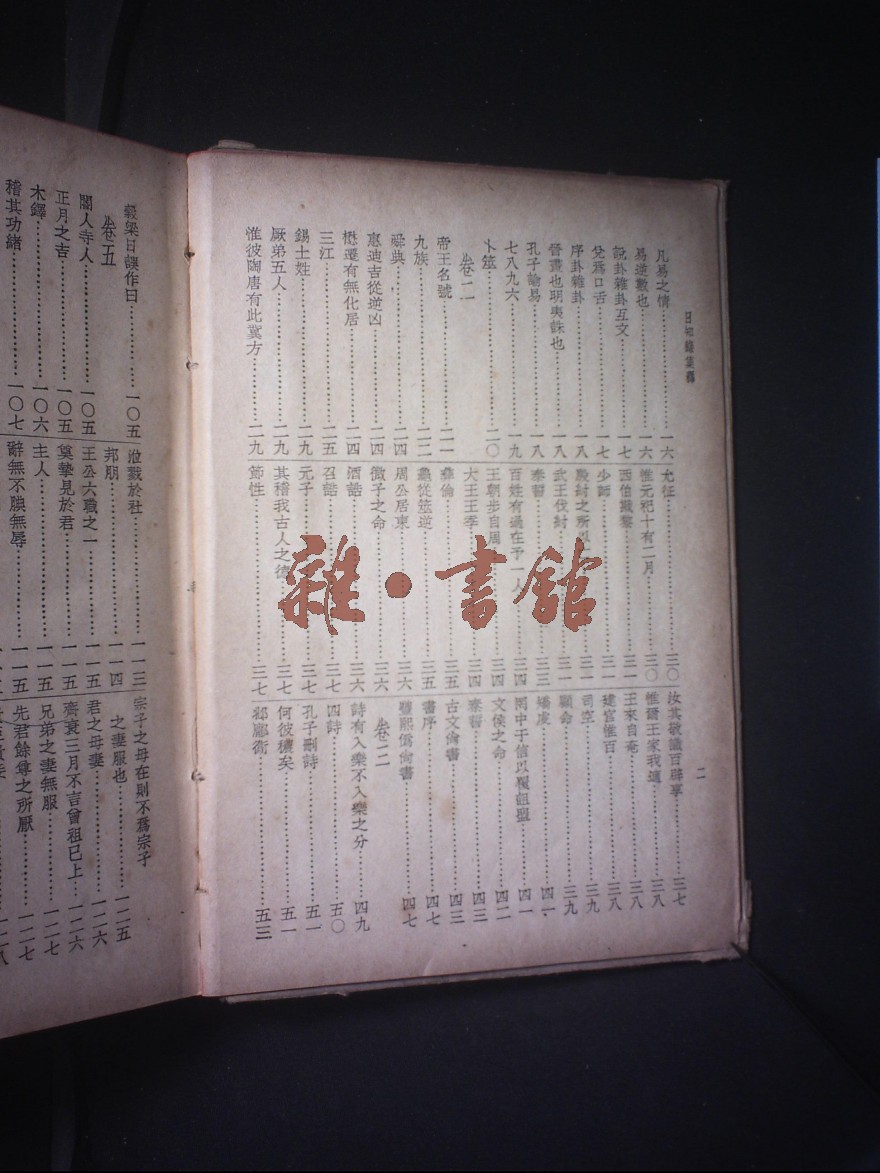 日知錄集釋
二
凡易之情……一六
易逆數也……一六
說卦雜卦互文……一七
兌爲口舌……一七
序卦雜卦……一八
晉晝也明夷誅也……一八
孔子論易……一八
七八九六……一九
卜筮……二〇
卷二
帝王名號……二一
九族……二二
舜典……二四
惠迪吉從逆凶……二四
懋遷有無化居……二四
三江……二五
錫土姓……二九
厥弟五人……二九
惟彼陶唐有此冀方……二九
允征……三〇
惟元祀十有二月……三〇
西伯戡黎……三一
少師……三一
殷紂之所……三一
武王伐紂……三一
泰誓……三三
百姓有過在予一人……三四
王朝步自周……三四
大王王季……三四
彝倫……三五
龜從筮逆……三五
周公居東……三六
微子之命……三六
酒誥……三六
召誥……三七
元子……三七
其稽我古人之德……三七
節性……三七
汝其敬識百辟享……三七
惟爾王家我適……三八
王來自奄……三八
建官惟百……三八
司空……三九
顧命……三九
矯虔……四一
罔中于信以覆詛盟……四一
文侯之命……四二
秦誓……四三
古文尚書……四三
書序……四七
豐熙僞尚書……四七
卷三
詩有入樂不入樂之分……四九
四詩……五〇
孔子刪詩……五一
何彼襛矣……五一
邶鄘衛……五三
穀梁日誤作曰……一〇五
卷五
閽人寺人……一〇五
正月之吉……一〇五
木鐸……一〇六
稽其功緒……一〇七
涖戮於社……一一三
邦朋……一一四
王公六職之一……一一五
奠摯見於君……一一五
主人……一一五
辭無不腆無辱……一一五
宗子之母在則不爲宗子
之妻服也……一二五
君之母妻……一二六
齊衰三月不言曾祖已上……一二六
兄弟之妻無服……一二七
先君餘尊之所厭……一二七
一二八
雜·書館